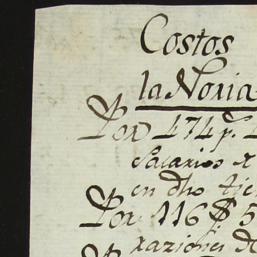 Costos
la Noria
Por 474 p.
Salarios
en dho tie
Por 116 $ 5
razion